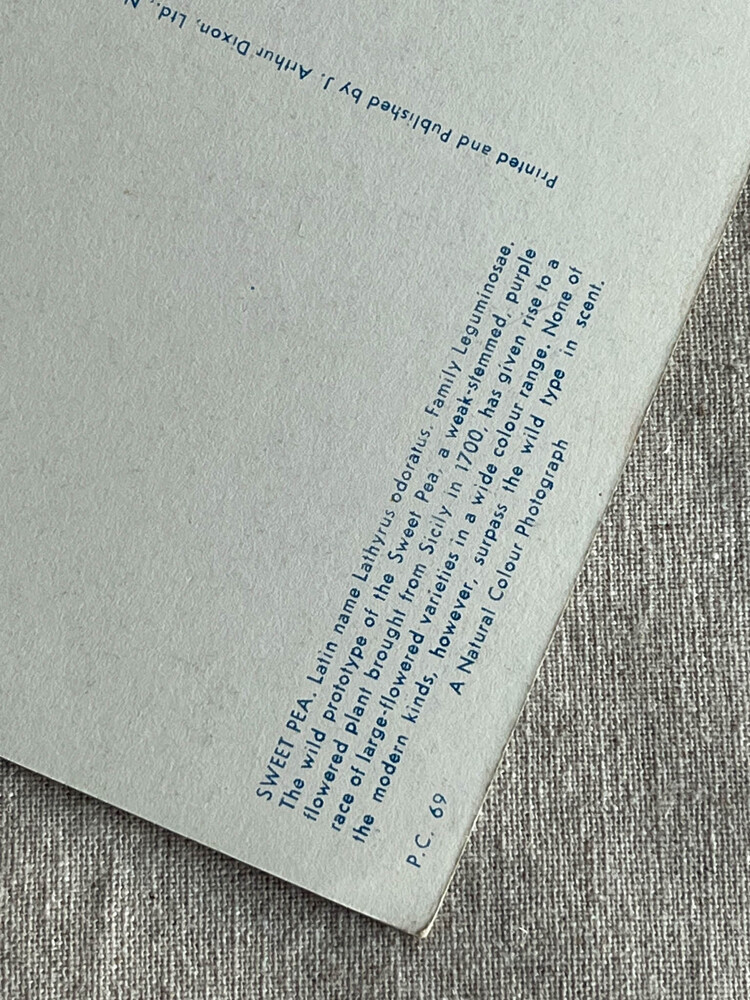 SWEET PEA. Latin name Lathyrus odoratus. Family Leguminosae.
The wild prototype of the Sweet Pea, a weak-stemmed, purple
flowered plant brought from Sicily in 1700, has given rise to a
race of large-flowered varieties in a wide colour range. None of
the modern kinds, however, surpass the wild type in scent.
A Natural Colour Photograph
P.C. 69
Printed and Published by J. Arthur Dixon, Ltd.,